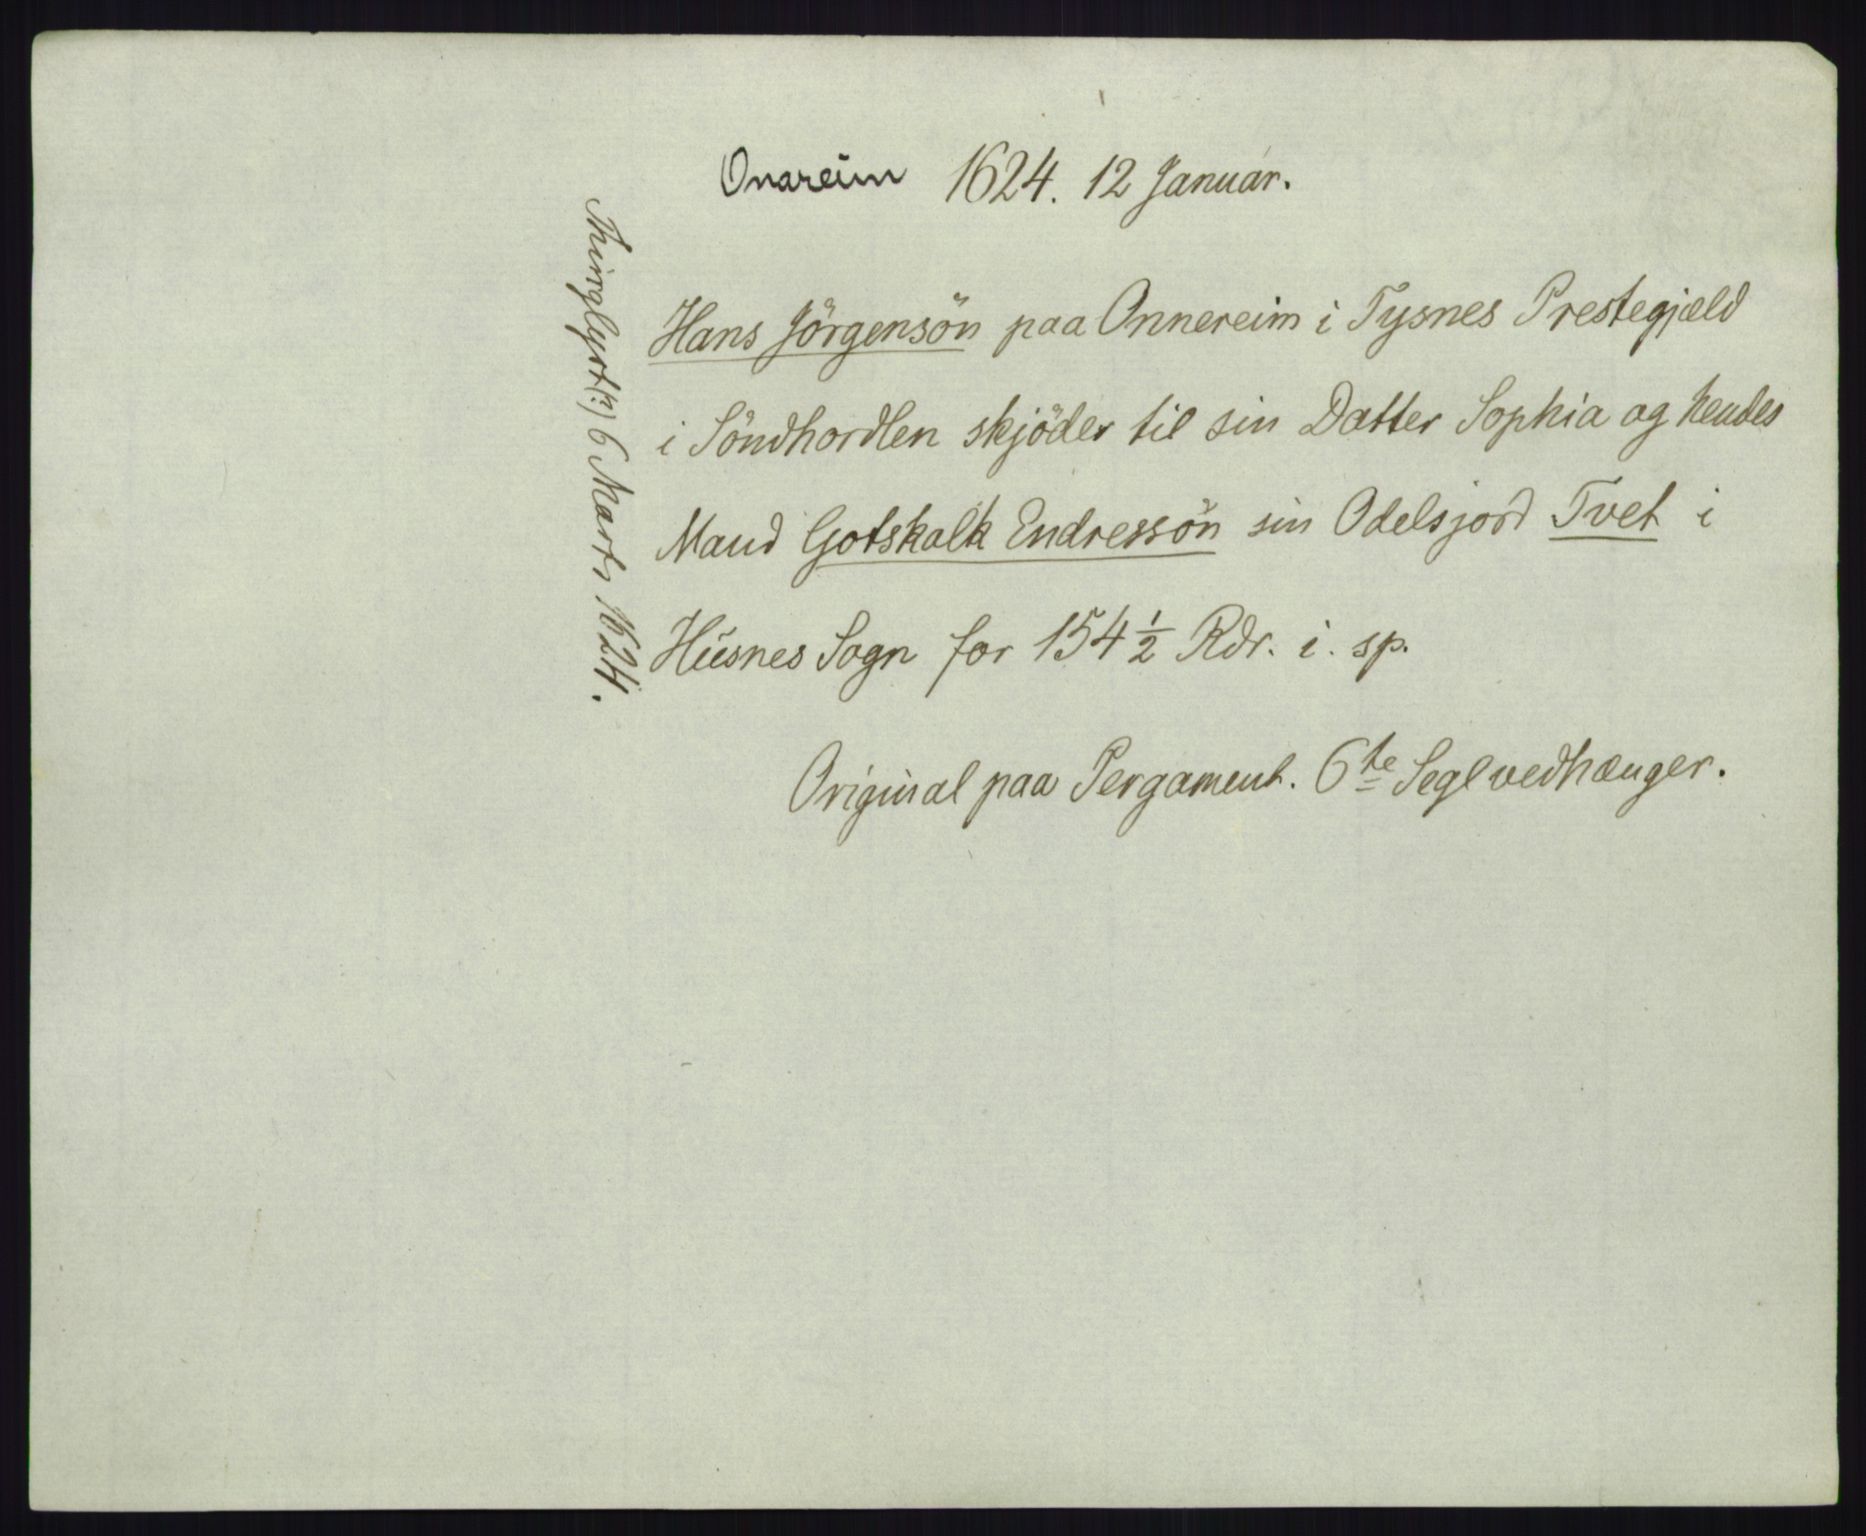 Onareim 1624. 12 Januar.
Hans Jörgensön paa Onnereim i Tysnes Prestegjæld
i Söndhordlen skjöder til sin Datter Sophia og hendes
Mand Gotskalk Endressön sin Odelsjord Tvet i
Husnes Sogn for 154 1/2 Rdr. i. sp.
Original paa Pergament. 6te Segl vedhænger.
Thinglyst(?) 6 Marts 1624.